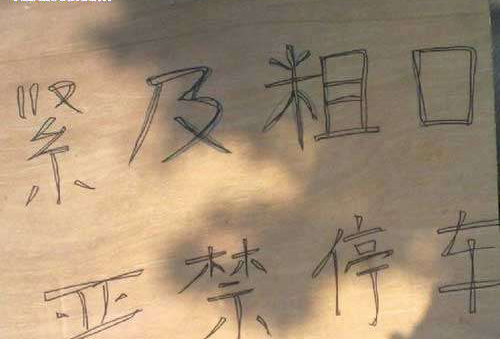 紧及粗口
亚禁停车